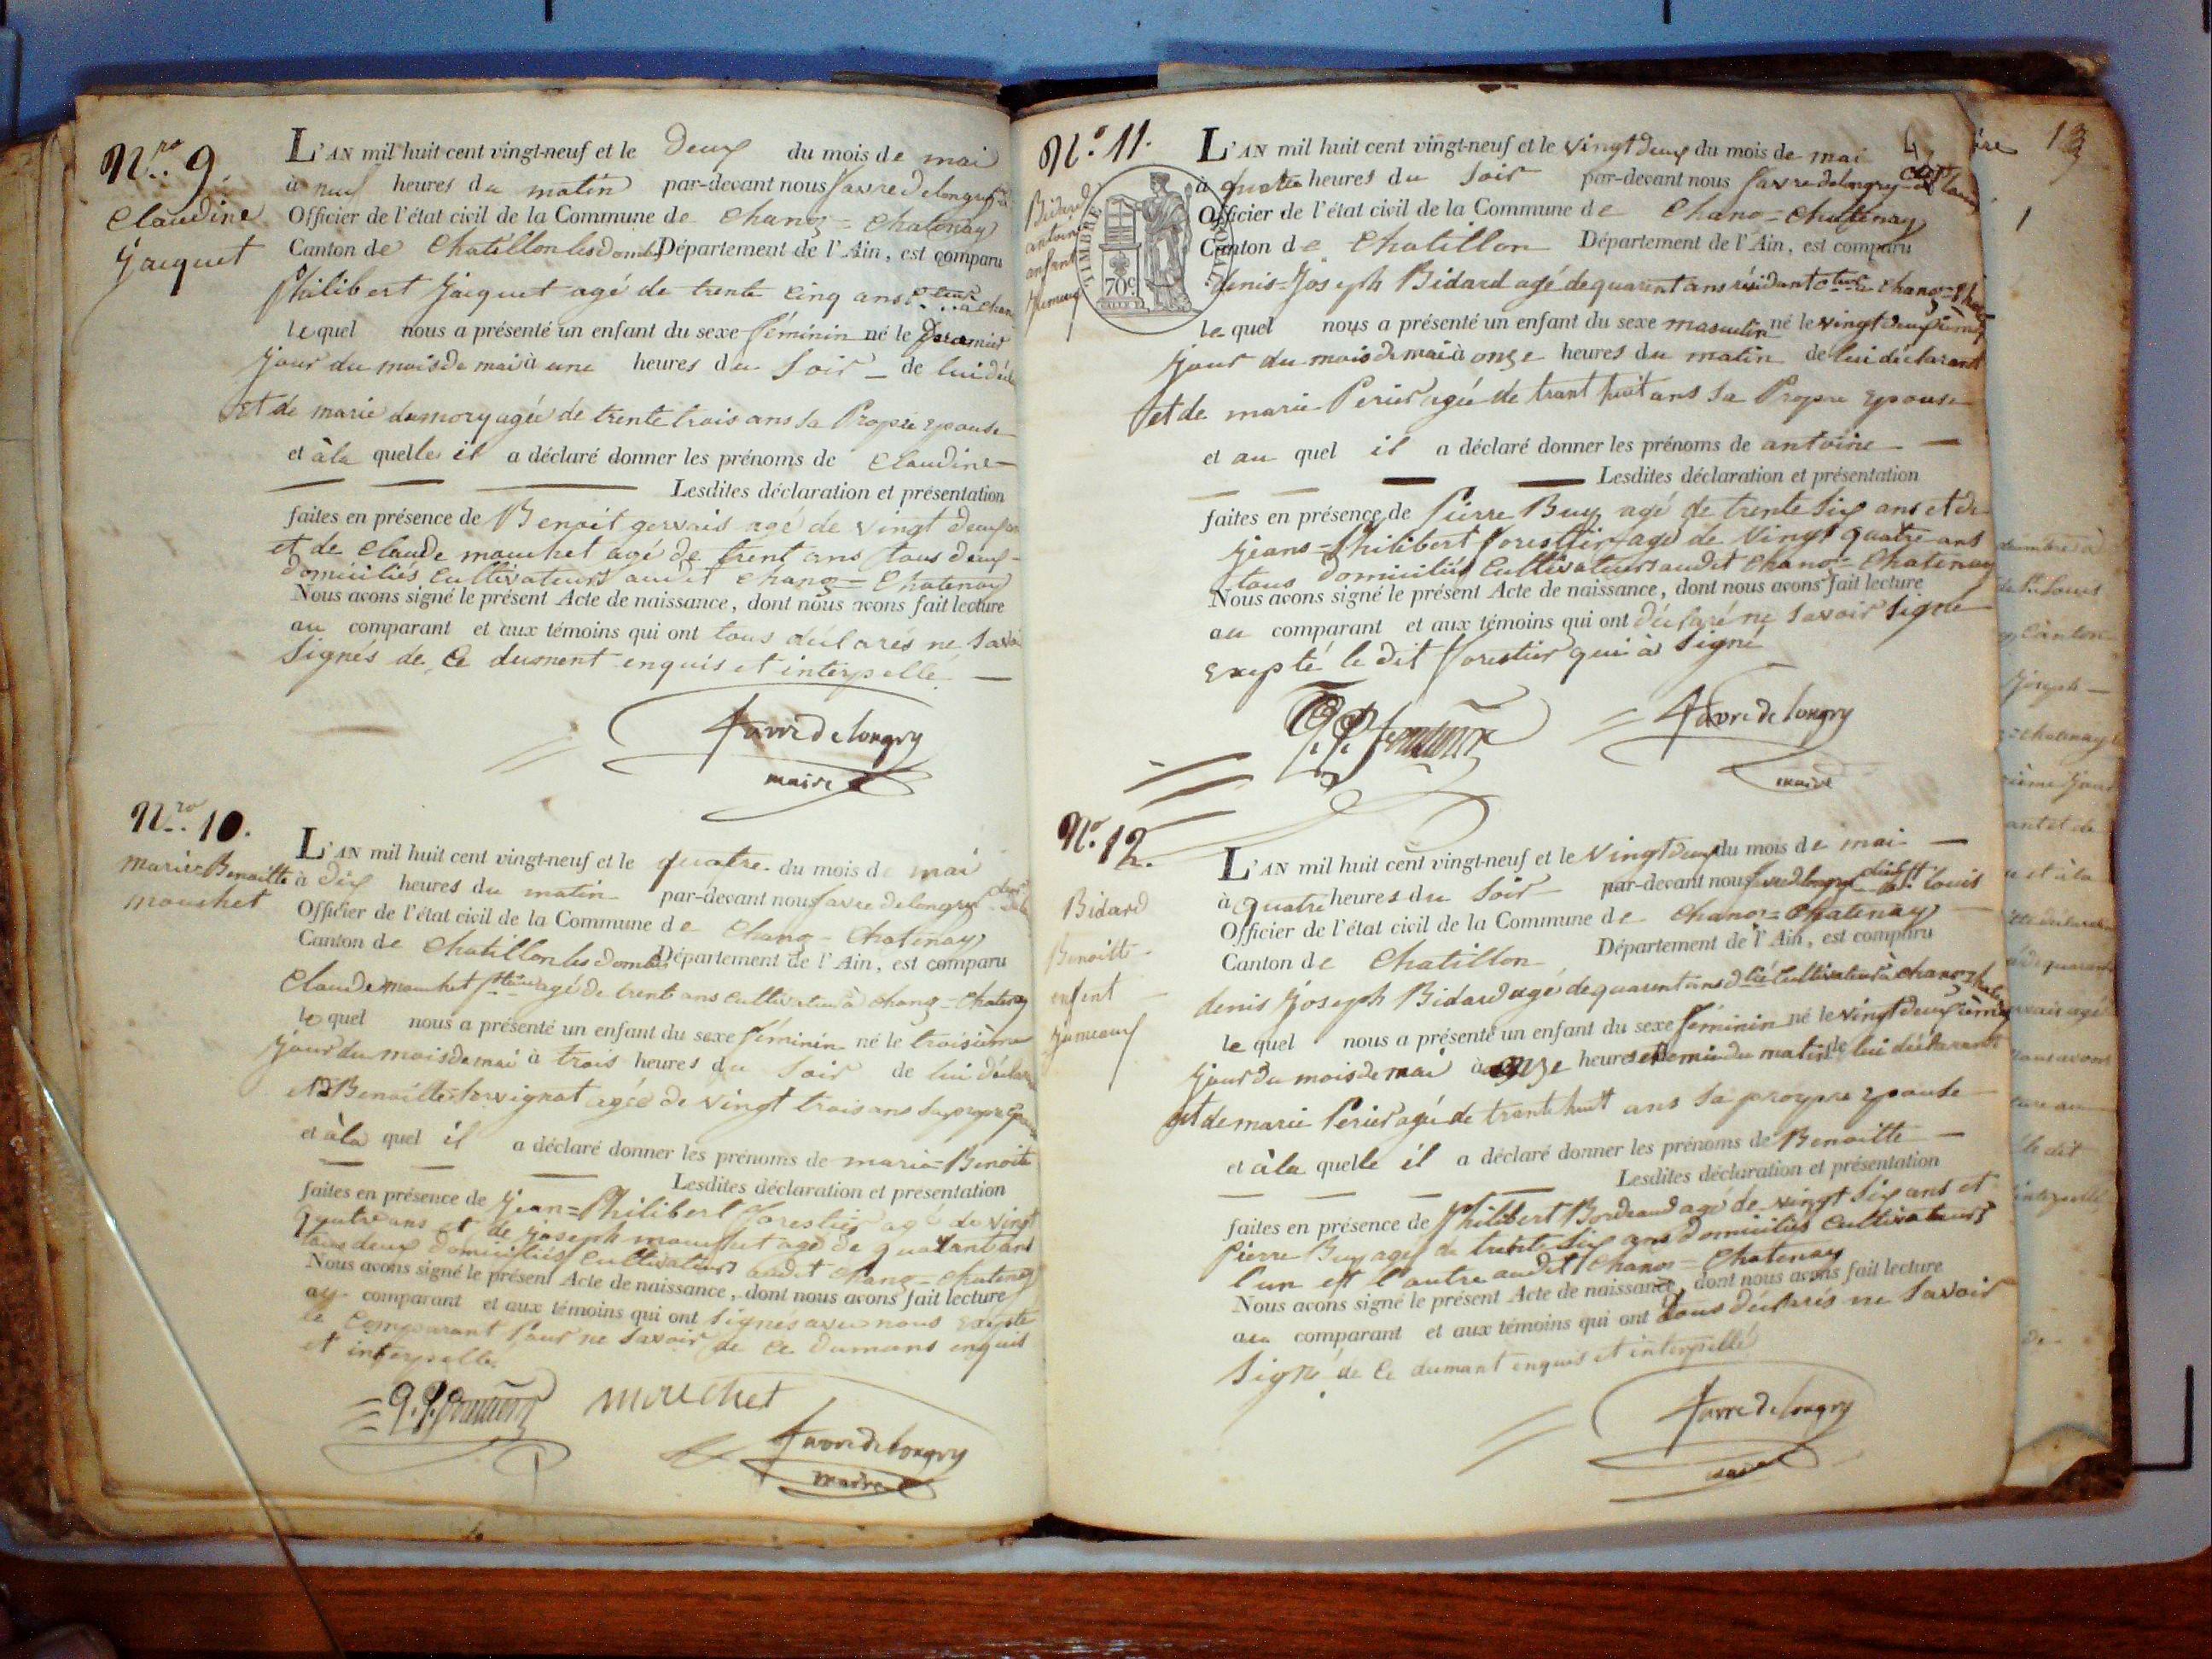 Nro. 9.
Claudine
Jacquet
L'AN mil huit cent vingt-neuf et le Deux du mois de mai
à neuf heures du matin par-devant nous favre Delongry
Officier de l'état civil de la Commune de Chanoz = Chatenay
Canton de Chatillon les domb Département de l'Ain, est comparu
Philibert Jacquet agé de trente cinq ans
lequel nous a présenté un enfant du sexe féminin né le premier
jour du mois de mai à une heures du Soir - de lui
et de marie dumory agée de trente trois ans sa Propre epouse
et à la quelle il a déclaré donner les prénoms de Claudine
Lesdites déclaration et présentation
faites en présence de Benoit gervais agé de vingt deux
et de Claude mouchet agé de trent ans tous deux
domiciliés Cultivateurs audit Chanoz = Chatenay
Nous avons signé le présent Acte de naissance, dont nous avons fait lecture
au comparant et aux témoins qui ont tous déclarés ne Savoir
Signés de Ce dument enquis et interpellé
favre De longry
maire
Nro. 10.
marie = Benoitte
mouchet
L'AN mil huit cent vingt-neuf et le quatre du mois de mai
à dix heures du matin par-devant nous favre Delongry
Officier de l'état civil de la Commune de Chanoz = Chatenay
Canton de Chatillon les domb Département de l'Ain, est comparu
Claude mouchet agé de trente ans cultivateur à chanoz = Chatenay
lequel nous a présenté un enfant du sexe féminin né le troisième
jour du mois de mai à trois heures du Soir de lui
et de Benoitte agée de vingt trois ans sa propre
et à la quel il a déclaré donner les prénoms de marie = Benoite
Lesdites déclaration et présentation
faites en présence de Jean = Philibert forestier agé de vingt
quatre ans et de joseph mouchet agé de quarant ans
tous deux domiciliés Cultivateurs audit Chanoz = Chatenay
Nous avons signé le présent Acte de naissance, dont nous avons fait lecture
au comparant et aux témoins qui ont signés avec nous Excepté
le Comparant pour ne savoir de Ce dumans enquis
et interpellé
mouchet
favre de longry
maire
No. 11.
Bidard
antoine
enfant
TIMBRE ROYAL
70c
L'AN mil huit cent vingt-neuf et le vingt deux du mois de mai
à quatre heures du Soir par-devant nous favre delongry
Officier de l'état civil de la Commune de Chanoz = Chatenay
Canton de Chatillon Département de l'Ain, est comparu
denis = Joseph Bidard agé de quarent ans résidant
lequel nous a présenté un enfant du sexe masculin né le vingt deuxième
jour du mois de mai à onze heures du matin de lui déclarant
et de marie Perier agée de trant huit ans sa Propre epouse
et au quel il a déclaré donner les prénoms de antoine
Lesdites déclaration et présentation
faites en présence de Pierre Buy agé de trente six ans et de
jeans = Philibert forestier agé de vingt quatre ans
tous domiciliés Cultivateurs audit Chanoz = Chatenay
Nous avons signé le présent Acte de naissance, dont nous avons fait lecture
au comparant et aux témoins qui ont déclaré ne savoir signé
exepté le dit forestier qui à signé
favre de longry
maire
No. 12.
Bidard
Benoitte
enfent
jumeaux
L'AN mil huit cent vingt-neuf et le Vingt deux du mois de mai
à quatre heures du Soir par-devant nous favre delongry Louis
Officier de l'état civil de la Commune de Chanoz = Chatenay
Canton de Chatillon Département de l'Ain, est comparu
denis Joseph Bidard agé de quarent ans Cultivateur à chanoz
lequel nous a présenté un enfant du sexe féminin né le vingt deuxième
jour du mois de mai à onze heures et Demi du matin de lui déclarant
et de marie Perier agée de trente huit ans sa propre epouse
et à la quelle il a déclaré donner les prénoms de Benoitte
Lesdites déclaration et présentation
faites en présence de Philibert Bordeaud agé de vingt six ans et
Pierre Buy agé de trente six ans domiciliés cultivateurs
l'un et l'autre audit Chanoz = Chatenay
Nous avons signé le présent Acte de naissance, dont nous avons fait lecture
au comparant et aux témoins qui ont tous déclarés ne savoir
signé de Ce dumant enquis et interpellé
favre de longry
maire